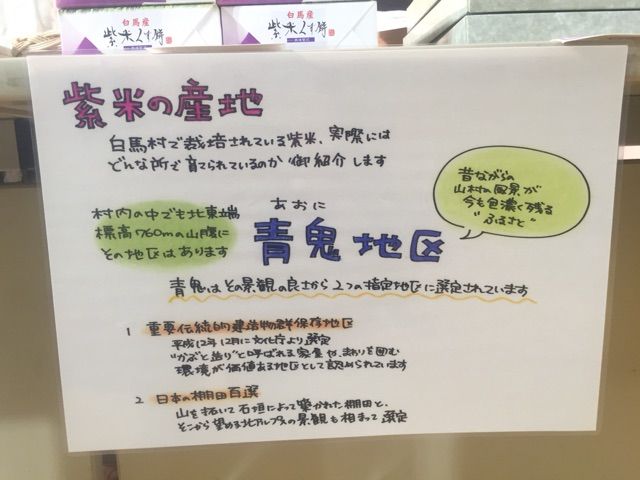 白馬産
紫米くず餅
白馬産
紫米くず餅
紫米の産地
白馬村で栽培されている紫米、実際には
どんな所で育てられているのか御紹介します
昔ながらの
山村の風景が
今も色濃く残る
"ふるさと"
村内の中でも北東端
標高760mの山腹に
その地区はあります
あおに
青鬼地区
青鬼はその景観の良さから2つの指定地区に選定されています
1 重要伝統的建造物群保存地区
平成12年12月に文化庁より選定
"かぶと造り"と呼ばれる家屋や、まわりを囲む
環境が価値ある地区として認められています
2 日本の棚田百選
山を拓いて石垣によって築かれた棚田と、
そこから望める北アルプスの景観も相まって選定